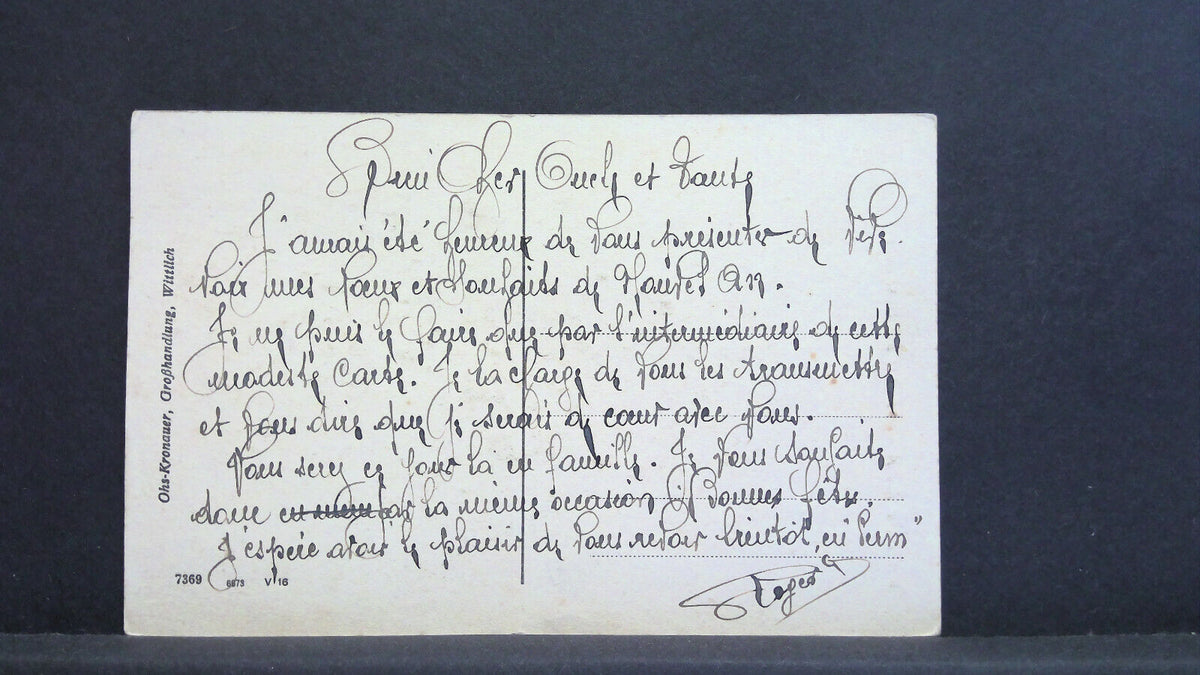 Cher Oncle et Tante
J'aurais été heureux de Vous présenter de Vive
Voix mes Vœux et Souhaits de Nouvel An.
Je ne puis le faire que par l'intermédiaire de cette
modeste Carte. Je la charge de Vous les transmettre
et Vous dire que je serais de cœur avec Vous.
Vous serez ce jour là en famille. Je Vous Souhaite
donc par la même occasion Bonnes fêtes.
J'espère avoir le plaisir de Vous revoir bientôt, en "Perm"
Roger
Ohs-Kronauer, Großhandlung, Wittlich
7369 6973 V 16